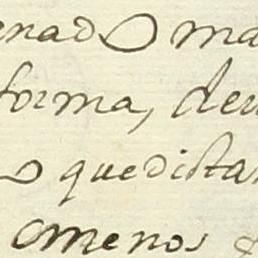 enado ma
forma, de
o que dista
omenos